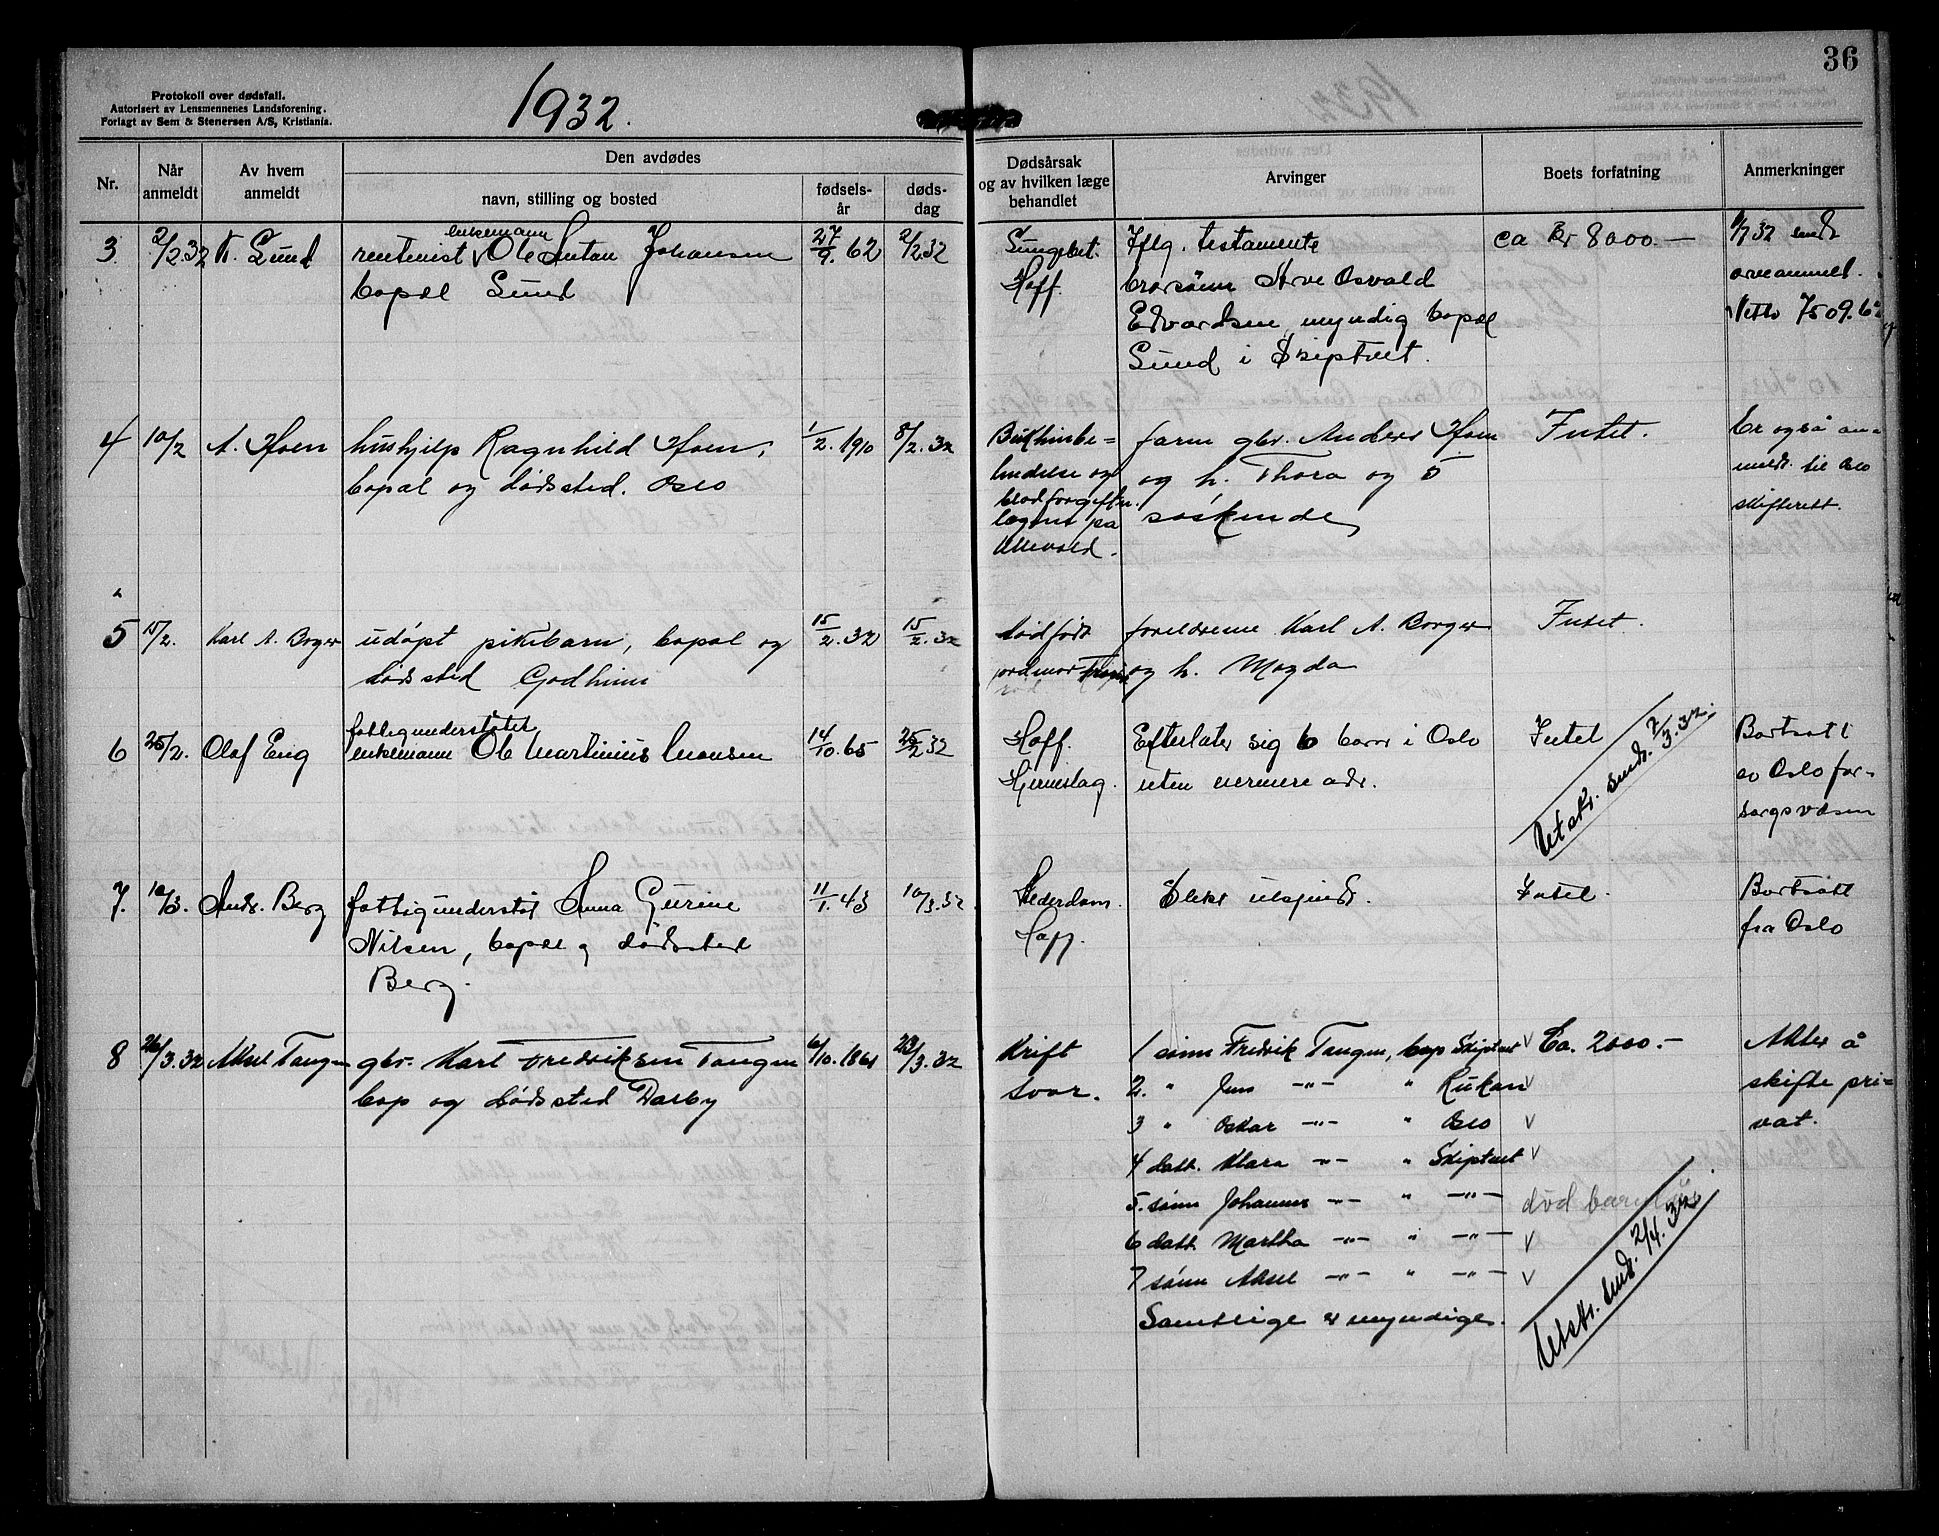 36
Protokoll over dødsfall.
Autorisert av Lensmennenes Landsforening.
Forlagt av Sem & Stenersen A/S, Kristiania.
1932.
Nr.
Når anmeldt
Av hvem anmeldt
Den avdødes
navn, stilling og bosted
fødsels-år
døds-dag
Dødsårsak og av hvilken læge behandlet
Arvinger
Boets forfatning
Anmerkninger
3 2/2.32 Sund
enkemann
rentenist Ole Anton Johansen
bopæl Sund
27/9. 62 2/2 32
Lungebet.
Hoff.
Iflg. testamente
brorsønn Arve Osvald
Edvardsen, myndig bopæl
Sund i Skiptvet.
ca Kr 8000.—
4/7 32 sendt
arveanmeld.
Netto 7509.6
4 10/2 A. Hoen
hushjelp Ragnhild Hoen,
bopæl og dødssted. Oslo
1/2. 1910 8/2. 32
Bukhinnebe-
tendelse og
blodforgiftn.
lægene på
Ullevold.
farm gbr. Anders Hoen
og h. Thora og 5
søskende
Intet.
Er også an-
meldt til Oslo
skifterett.
5 15/2. Karl A. Borger
udøpt pikebarn, bopæl og
dødssted Godheim
15/2. 32 15/2. 32
dødfødt
jordmor
foreldrene Karl A. Borger
og h. Magda
Intet.
6 25/2. Olaf Eng
fattigunderstøtet
enkemann Ole Martinius Monsen
14/10. 65 25/2 32
Hoff.
Hjerneslag.
Efterlater sig 6 barn i Oslo
uten nermere adr.
Intet
Utskr. sendt. 7/3. 32.
Bortsatt
av Oslo for-
sorgsvæsen
7. 10/3. Andr. Berg
fattigunderstøt Anna Gurine
Nilsen, bopæl og dødssted
Berg.
11/1. 43 10/3. 32.
Alderdom.
Hoff.
Slekt utkjendt.
Intet.
Bortsatt
fra Oslo
8 26/3. 32 Aksel Tangen
gbr. Karl Fredriksen Tangen
bop og dødssted Darby
6/10. 1861 23/3. 32
Kreft
svor.
1 sønn Fredrik Tangen, bop Skiptvet √ Ca. 2000.-
2. " Jens —"— " Rukan √
3 " Oskar —"— " Oslo √
4 datt. Klara —"— " Skiptvet √
5. sønn Johannes —"— " —"— død barnløs
6 datt. Martha —"— " —"— √
7 sønn Aksel —"— " —"— √
Samtlige er myndige.
Utskr. sendt. 2/4. 32
Akter å
skifte pri-
vat.